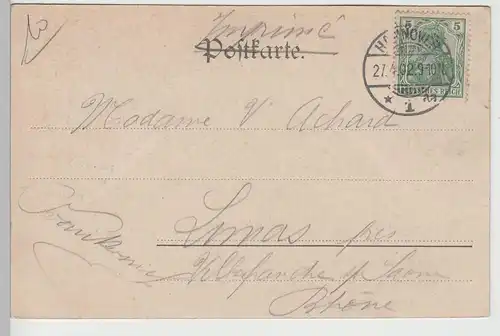 Imprimé
Postkarte.
HANNOVER
27.4.02.9-10V.
* 1
5 5
REICH
Madame V Achard
Limas près
Villefranche s/ Saone
Rhône